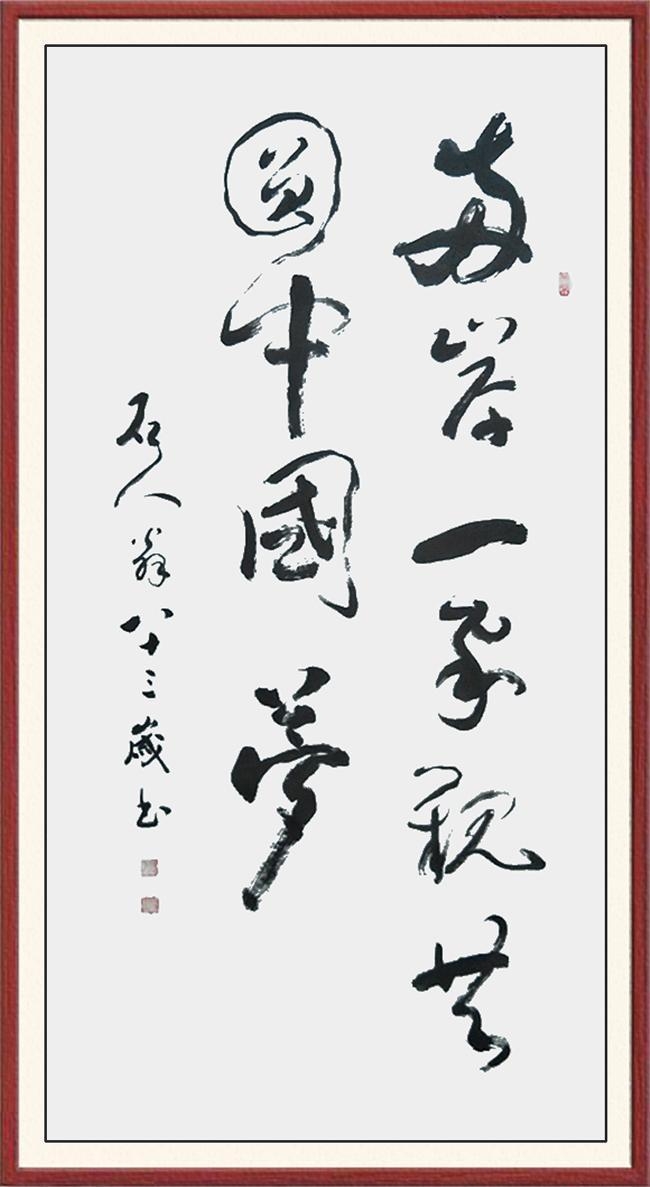 兩岸一家親共
圓中國夢
石人翁八十三歲書